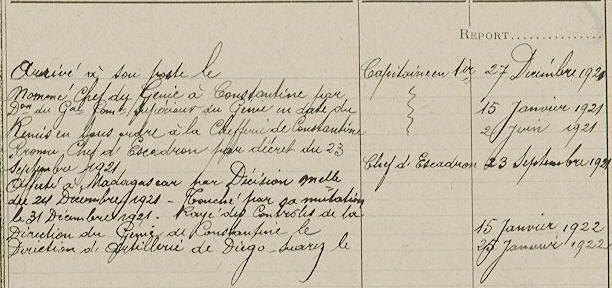 REPORT
Arrivé à son poste le Capitaine en 1er 27 Décembre 1920
Nommé Chef du Génie à Constantine par
Don du Gal Comt Supérieur du Génie en date du 15 Janvier 1921
Remis en sous ordre à la Chefferie de Constantine 2 Juin 1921
Promu Chef d'Escadron par décret du 23
Septembre 1921 Chef d'Escadron 23 Septembre 1921
Affecté à Madagascar par Décision melle
du 24 Décembre 1921 - Touché par sa mutation
le 31 Décembre 1921 - Rayé des Contrôles de la
Direction du Génie de Constantine le 15 Janvier 1922
Direction d'Artillerie de Diégo-Suarez le 26 Janvier 1922